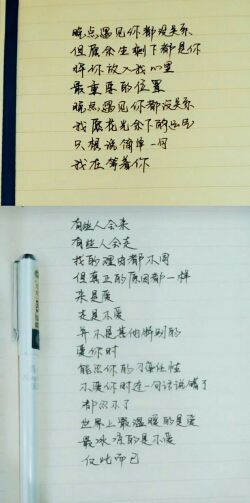 晚点遇见你都没关系
但愿余生剩下都是你
将你放入我心里
最重要的位置
晚点遇见你都没关系
我愿花光余下的运气
只想说简单一句
我在等着你
有些人会来
有些人会走
我的理由都不同
但真正的原因都一样
来是爱
走是不爱
并不是其他特别的
爱你时
能忍你的刁蛮任性
不爱你时连一句话说错了
都忍不了
世界上最温暖的是爱
最冰凉的是不爱
仅此而已